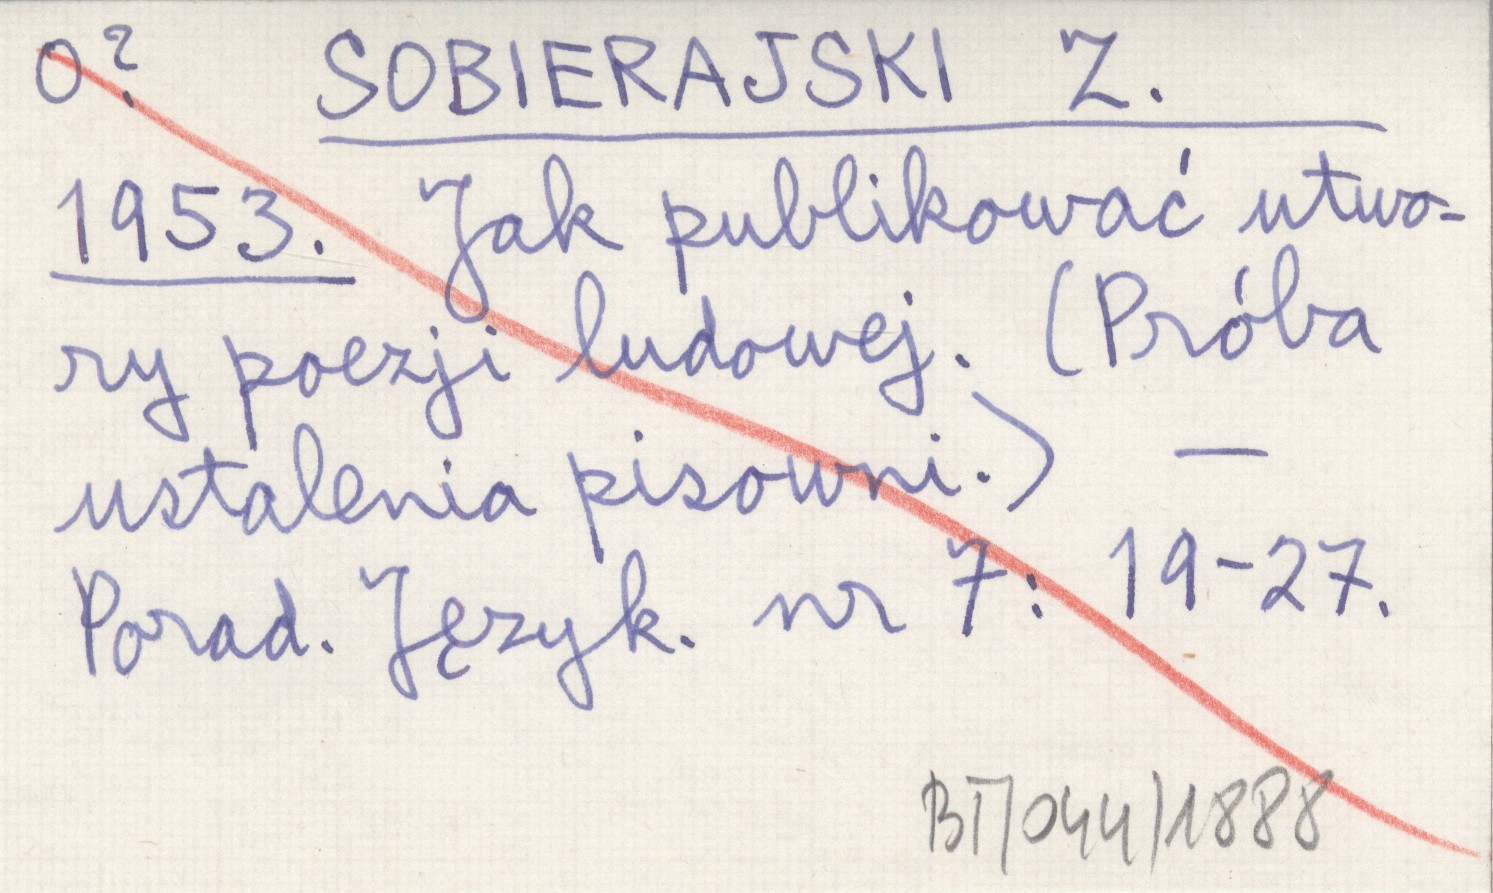 O? SOBIERAJSKI Z.
1953. Jak publikować utwo-
ry poezji ludowej. (Próba
ustalenia pisowni.) —
Porad. Język. nr 7: 19-27.
BT/044/1888